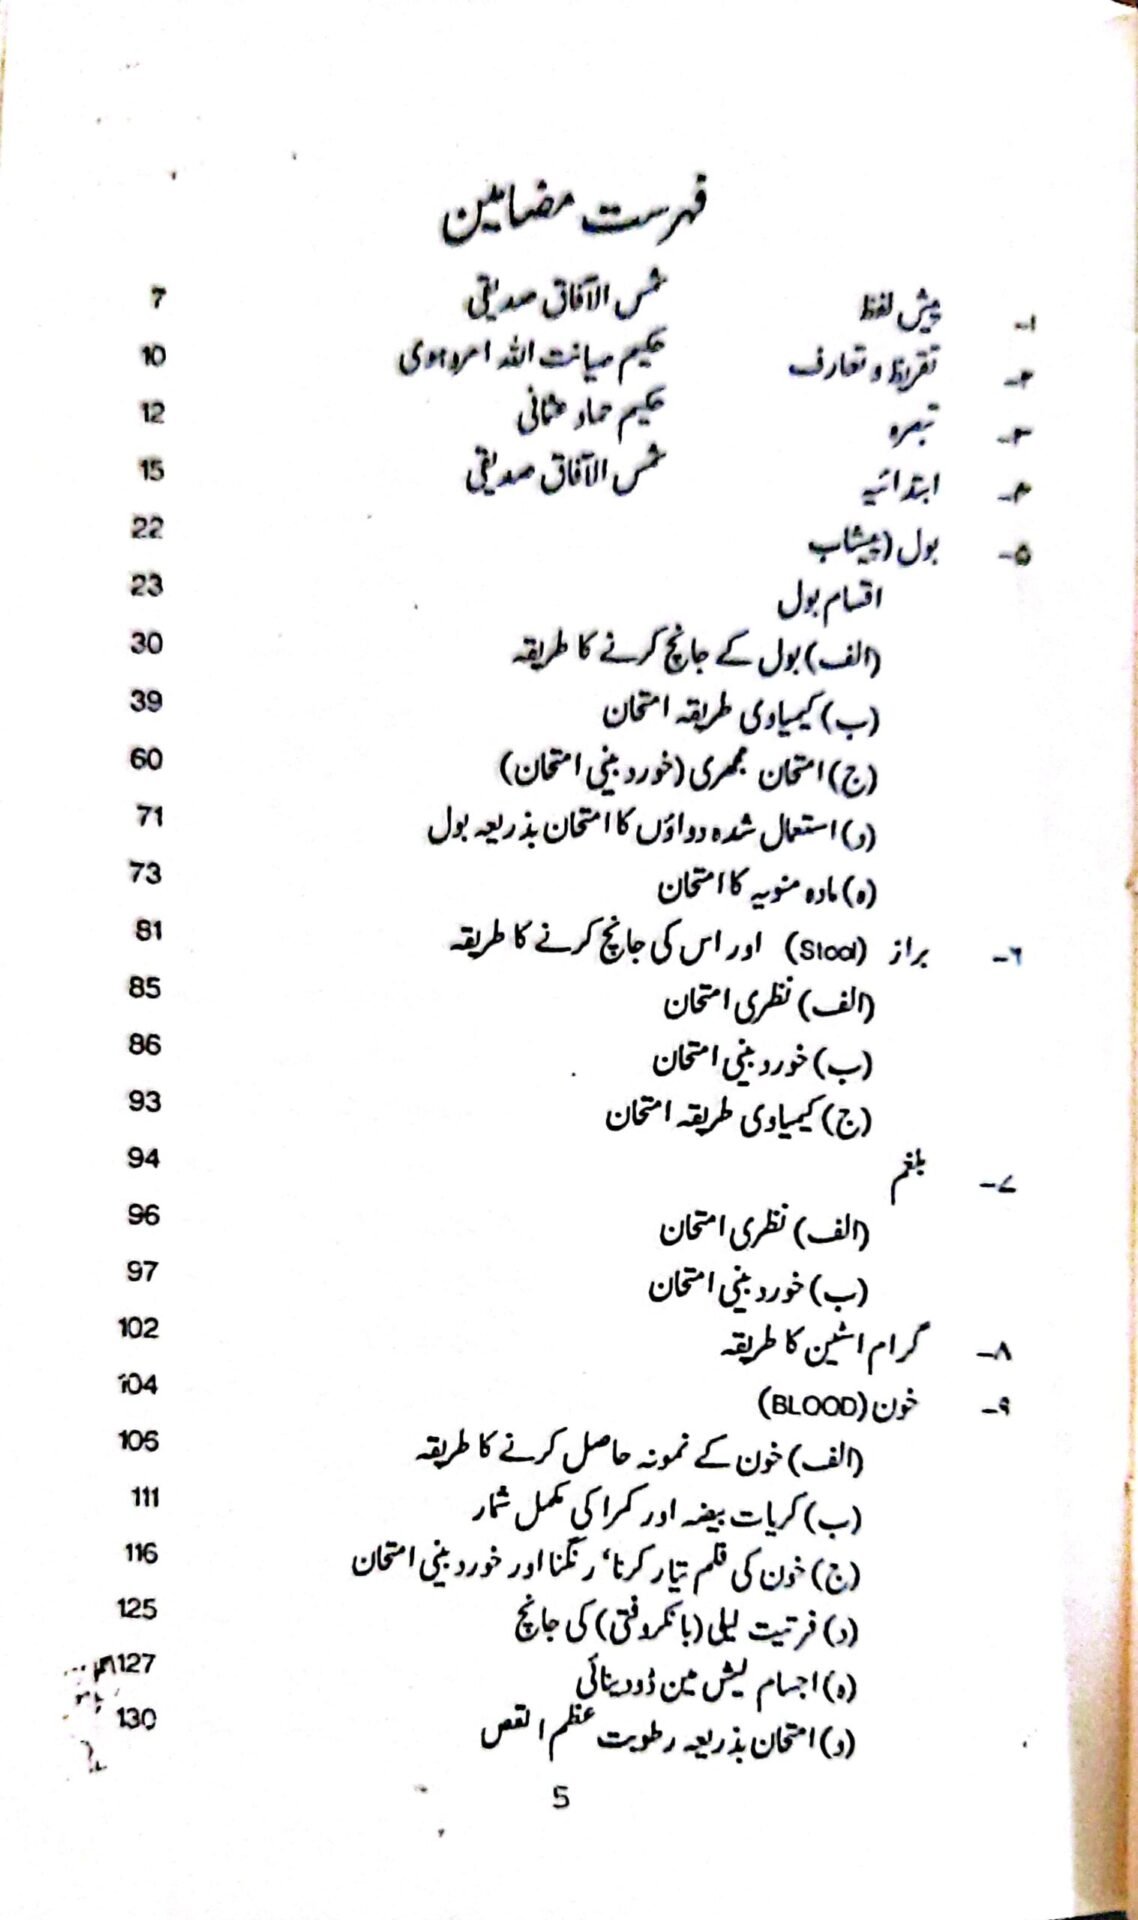 فہرست مضامین
۱- پیش لفظ شمس الآفاق صدیقی 7
۲- تقریظ و تعارف حکیم صیانت اللہ امروہوی 10
۳- تبصرہ حکیم حماد عثمانی 12
۴- ابتدائیہ شمس الآفاق صدیقی 15
۵- بول (پیشاب 22
اقسام بول 23
(الف) بول کے جانچ کرنے کا طریقہ 30
(ب) کیمیاوی طریقہ امتحان 39
(ج) امتحان مجہری (خوردبینی امتحان) 60
(د) استعمال شدہ دواؤں کا امتحان بذریعہ بول 71
(ہ) مادہ منویہ کا امتحان 73
۶- براز (Stool) اور اس کی جانچ کرنے کا طریقہ 81
(الف) نظری امتحان 85
(ب) خوردبینی امتحان 86
(ج) کیمیاوی طریقہ امتحان 93
۷- بلغم 94
(الف) نظری امتحان 96
(ب) خوردبینی امتحان 97
۸- گرام اشین کا طریقہ 102
۹- خون (BLOOD) 104
(الف) خون کے نمونہ حاصل کرنے کا طریقہ 105
(ب) کریات بیضہ اور کمرا کی مکمل شمار 111
(ج) خون کی فلم تیار کرنا، رنگنا اور خوردبینی امتحان 116
(د) فرتیت لیلی (بانکروفتی) کی جانچ 125
(ہ) اجسام لیش مین ڈودینائی 127
(و) امتحان بذریعہ رطوبت عظم القص 130
5